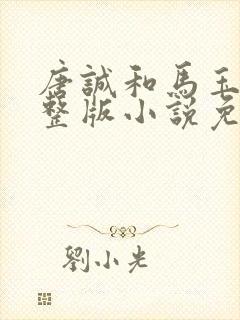 唐誠和馬玉
整版小說免
劉小光